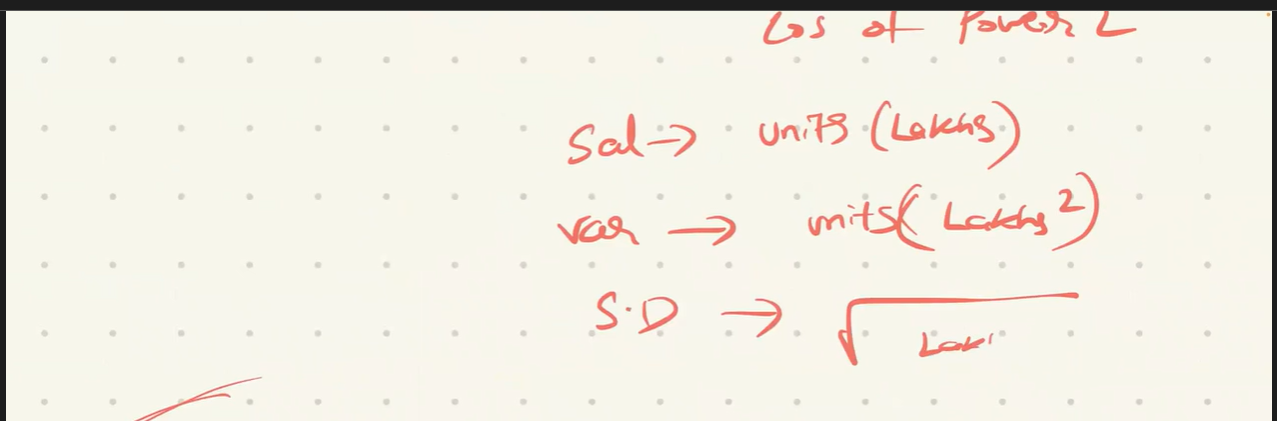 Los of Power 2
Sal → units (Lakhs)
Var → units (Lakhs²)
S.D → √Lak